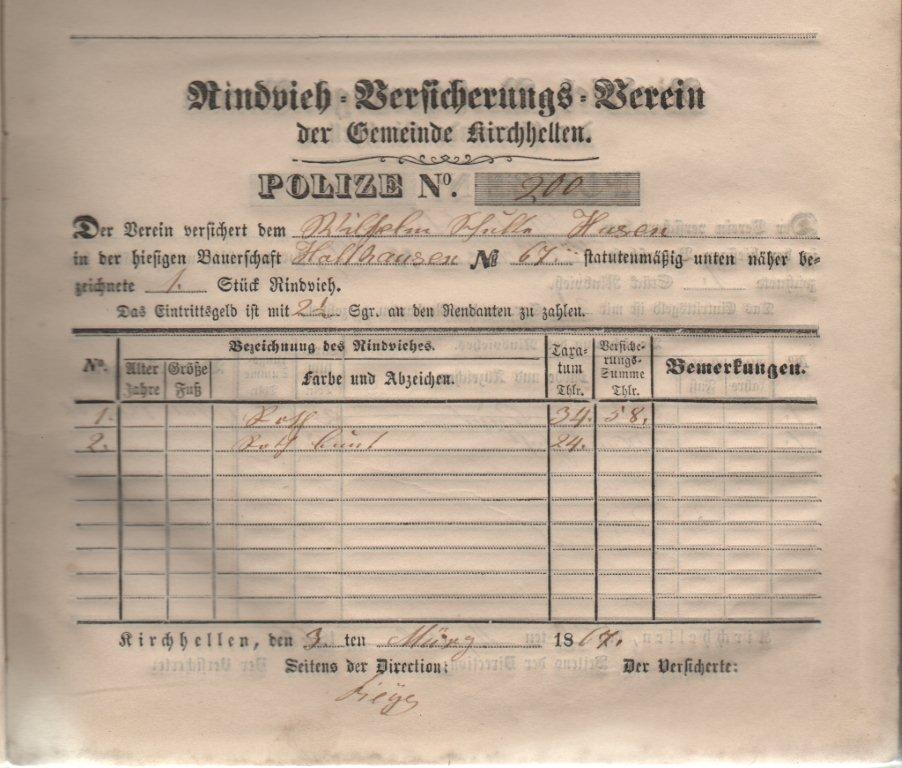 Rindvieh-Versicherungs-Verein
der Gemeinde Kirchhellen.
POLIZE No. 200
Der Verein versichert dem Wilhelm Schulte Husen
in der hiesigen Bauerschaft Holthausen No 67. statutenmäßig unten näher be-
zeichnete 1. Stück Rindvieh.
Das Eintrittsgeld ist mit 2½ Sgr. an den Rendanten zu zahlen.
No. Bezeichnung des Rindviehes. Taxatum Thlr. Versicherungs-Summe Thlr. Bemerkungen.
Alter Jahre Größe Fuß Farbe und Abzeichen.
1. Roth 34. 58.
2. Roth bunt 24.
Kirchhellen, den 3. ten März 1867.
Seitens der Direction: Der Versicherte: